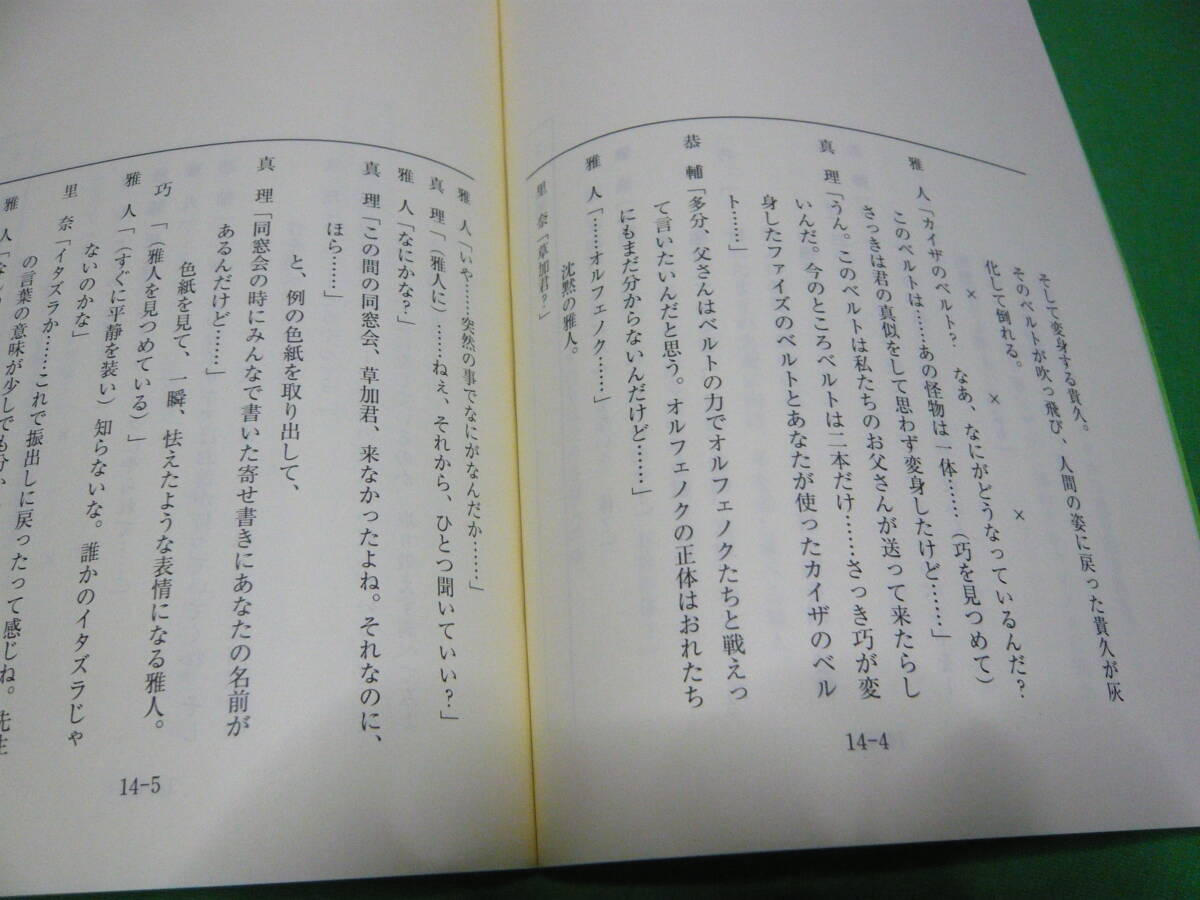 そして変身する貴久。
そのベルトが吹っ飛び、人間の姿に戻った貴久が灰
化して倒れる。
× × ×
雅人「カイザのベルト? なあ、なにがどうなっているんだ?
このベルトは……あの怪物は一体……(巧を見つめて)
さっきは君の真似をして思わず変身したけど……」
真理「うん。このベルトは私たちのお父さんが送って来たらし
いんだ。今のところベルトは二本だけ……さっき巧が変
身したファイズのベルトとあなたが使ったカイザのベル
ト……」
恭輔「多分、父さんはベルトの力でオルフェノクたちと戦えっ
て言いたいんだと思う。オルフェノクの正体はおれたち
にもまだ分からないんだけど……」
雅人「……オルフェノク……」
沈黙の雅人。
里奈「草加君?」
14-4
雅人「いや……突然の事でなにがなんだか……」
真理「(雅人に)……ねぇ、それから、ひとつ聞いていい?」
雅人「なにかな?」
真理「この間の同窓会、草加君、来なかったよね。それなのに、
ほら……」
と、例の色紙を取り出して、
真理「同窓会の時にみんなで書いた寄せ書きにあなたの名前が
あるんだけど……」
色紙を見て、一瞬、怯えたような表情になる雅人。
巧「(雅人を見つめている)」
雅人「(すぐに平静を装い)知らないな。誰かのイタズラじゃ
ないのかな」
里奈「イタズラか……これで振出しに戻ったって感じね。先生
の言葉の意味が少しでも分か
雅人「な
14-5